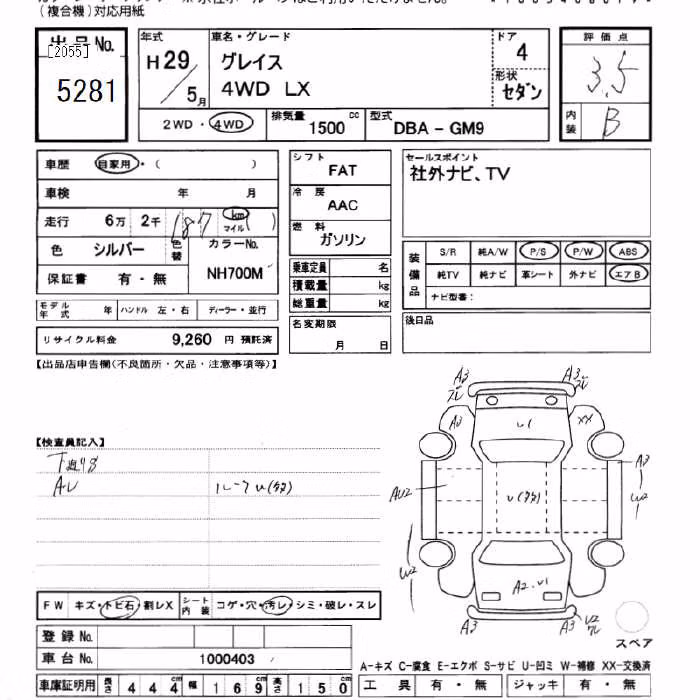 (複合機)対応用紙
出品No.
[2055]
5281
年式
H 29
5月
車名・グレード
グレイス
4WD LX
ドア
4
形状
セダン
評価点
3.5
内装
B
2WD・4WD
排気量 1500 cc
型式 DBA - GM9
車歴 自家用・( )
車検 年 月
走行 6万 2千 187 km マイル ( )
色 シルバー 色替
カラーNo.
NH700M
保証書 有・無
シフト
FAT
冷房
AAC
燃料
ガソリン
セールスポイント
社外ナビ、TV
乗車定員 名
積載量 kg
総重量 kg
装備品
S/R 純A/W P/S P/W ABS
純TV 純ナビ 革シート 外ナビ エアB
ナビ型番:
モデル年式 年 ハンドル 左・右 ディーラー・並行
リサイクル料金 9,260 円 預託済
名変期限
月 日
後日品
【出品店申告欄(不良箇所・欠品・注意事項等)】
A3 A3
A3 U1 XX
A3
AU2 U(多多) U2
U2
A2.U1
A3 A3 U2
【検査員記入】
下廻サビ
AU
ルーフU(多多)
FW キズ・トビ石・割レX
シート内装 コゲ・穴・汚レ・シミ・破レ・スレ
スペア
登録No.
車台No. 1000403
A-キズ C-腐食 E-エクボ S-サビ U-凹ミ W-補修 XX-交換済
車庫証明用 長さ 444cm 幅 169cm 高さ 150cm
工具 有・無 ジャッキ 有・無